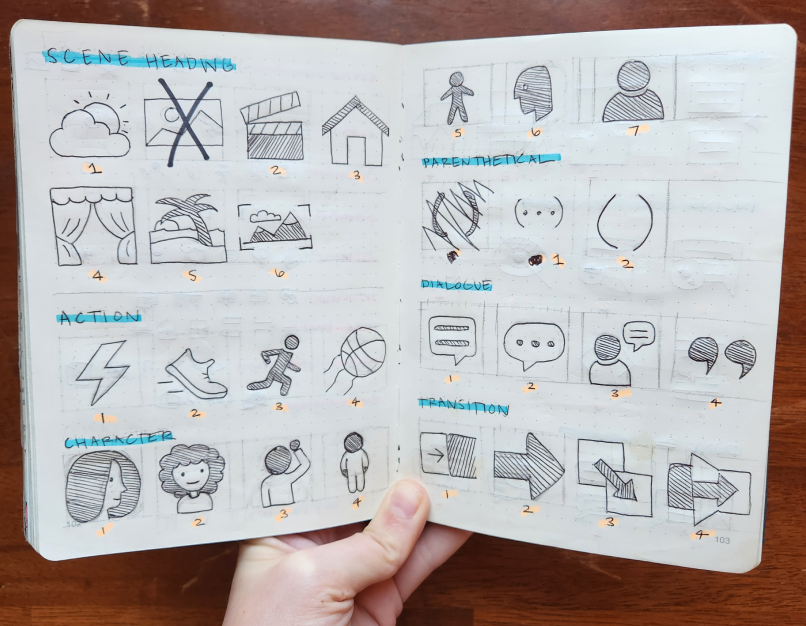 SCENE HEADING
1 2 3
4 5 6
ACTION
1 2 3 4
CHARACTER
1 2 3 4
5 6 7
PARENTHETICAL
1 2
DIALOGUE
1 2 3 4
TRANSITION
1 2 3 4
103